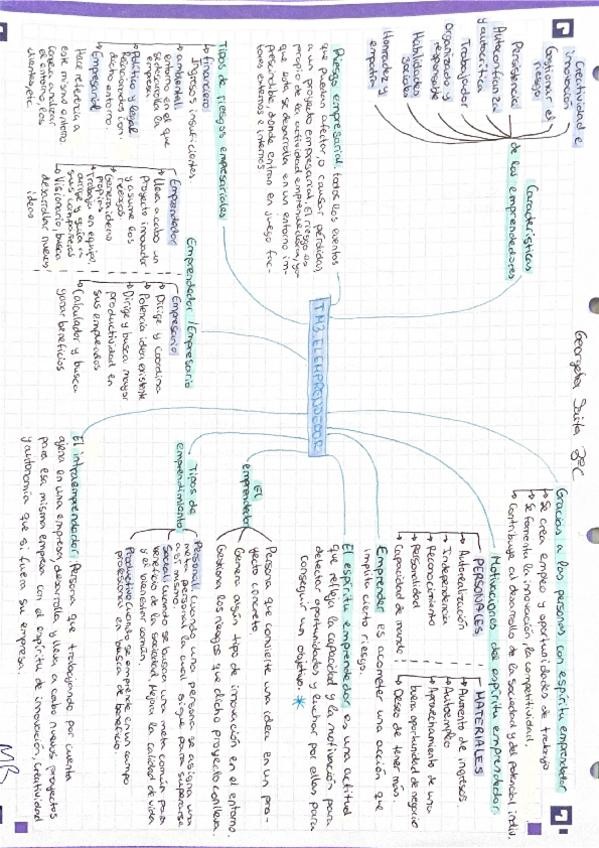 Georgeta
2ºC
TM3. EL EMPRENDEDOR
Gracias a las personas con espíritu emprendedor
↳ Se crea empleo y oportunidades de trabajo
↳ Se fomenta la innovación, la competitividad.
↳ Contribuye al desarrollo de la sociedad y del potencial indiv.
Motivaciones del espíritu emprendedor
PERSONALES
→ Autorrealización
→ Independencia
→ Reconocimiento
→ Personalidad
→ Capacidad de mando
MATERIALES
→ Aumento de ingresos
→ Autoempleo
→ Aprovechamiento de una
buena oportunidad de negocio
→ Deseo de tener más.
Emprender es acometer una acción que
implica cierto riesgo.
El espíritu emprendedor es una actitud
que refleja la capacidad y la motivación para
detectar oportunidades y luchar por ellas para
conseguir un objetivo. *
El
emprendedor
Persona que convierte una idea en un pro-
yecto concreto
Genera algún tipo de innovación en el entorno.
Gestiona los riesgos que dicho proyecto conlleva.
Tipos de
emprendimiento
Personal: cuando una persona se asigna una
meta personal la cual sigue para superarse
a sí misma.
Social: cuando se busca una meta común para
beneficio de la sociedad, mejora la calidad de vida
y el bienestar común
Productivo: cuando se emprende en un campo
profesional en busca de beneficio.
El intraemprendedor: Persona que trabajando por cuenta
ajena en una empresa, desarrolla y lleva a cabo nuevos proyectos
para esa misma empresa con el espíritu de innovación, creatividad
y autonomía que si fuera su empresa.
Características
de los emprendedores
Creatividad e
innovación
Gestionar el
riesgo
Persistencia
Autoconfianza
y autocrítica
Trabajador
Organizado y
responsable
Habilidades
sociales
Honradez y
empatía
Riesgo empresarial: todos los eventos
que puedan afectar o causar pérdidas,
a un proyecto empresarial. El riesgo es
propio de la actividad emprendedora, ya
que esta se desarrolla en un entorno im-
prescindible, donde entran en juego fac-
tores externos e internos
Tipos de riesgos empresariales
→ Financiero
Ingresos insuficientes
→ Ambiental:
entorno en el que
se desarrolla la
empresa
→ Político y legal
Relacionado con
dicho entorno.
→ Empresarial
Hace referencia a
este mismo entorno.
Conviene analizar
el entorno, los
clientes, etc
Emprendedor / Empresario
Emprendedor
→ Lleva a cabo un
proyecto innovador
y asume los
riesgos
→ Genera ideas
propias
→ Trabaja en equipo
dirige y guía a
sus compañeros
→ Visionario, busca
desarrollar nuevas
ideas
Empresario
→ Dirige y coordina
→ Potencia idea existente
→ Dirige y busca mayor
productividad en
sus empleados
→ Calculador y busca
ganar beneficios
MB